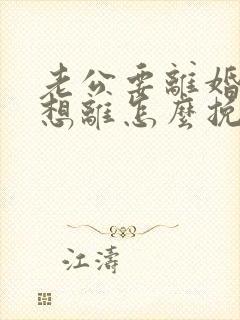 老公要離婚
想離怎麼挽
江濤